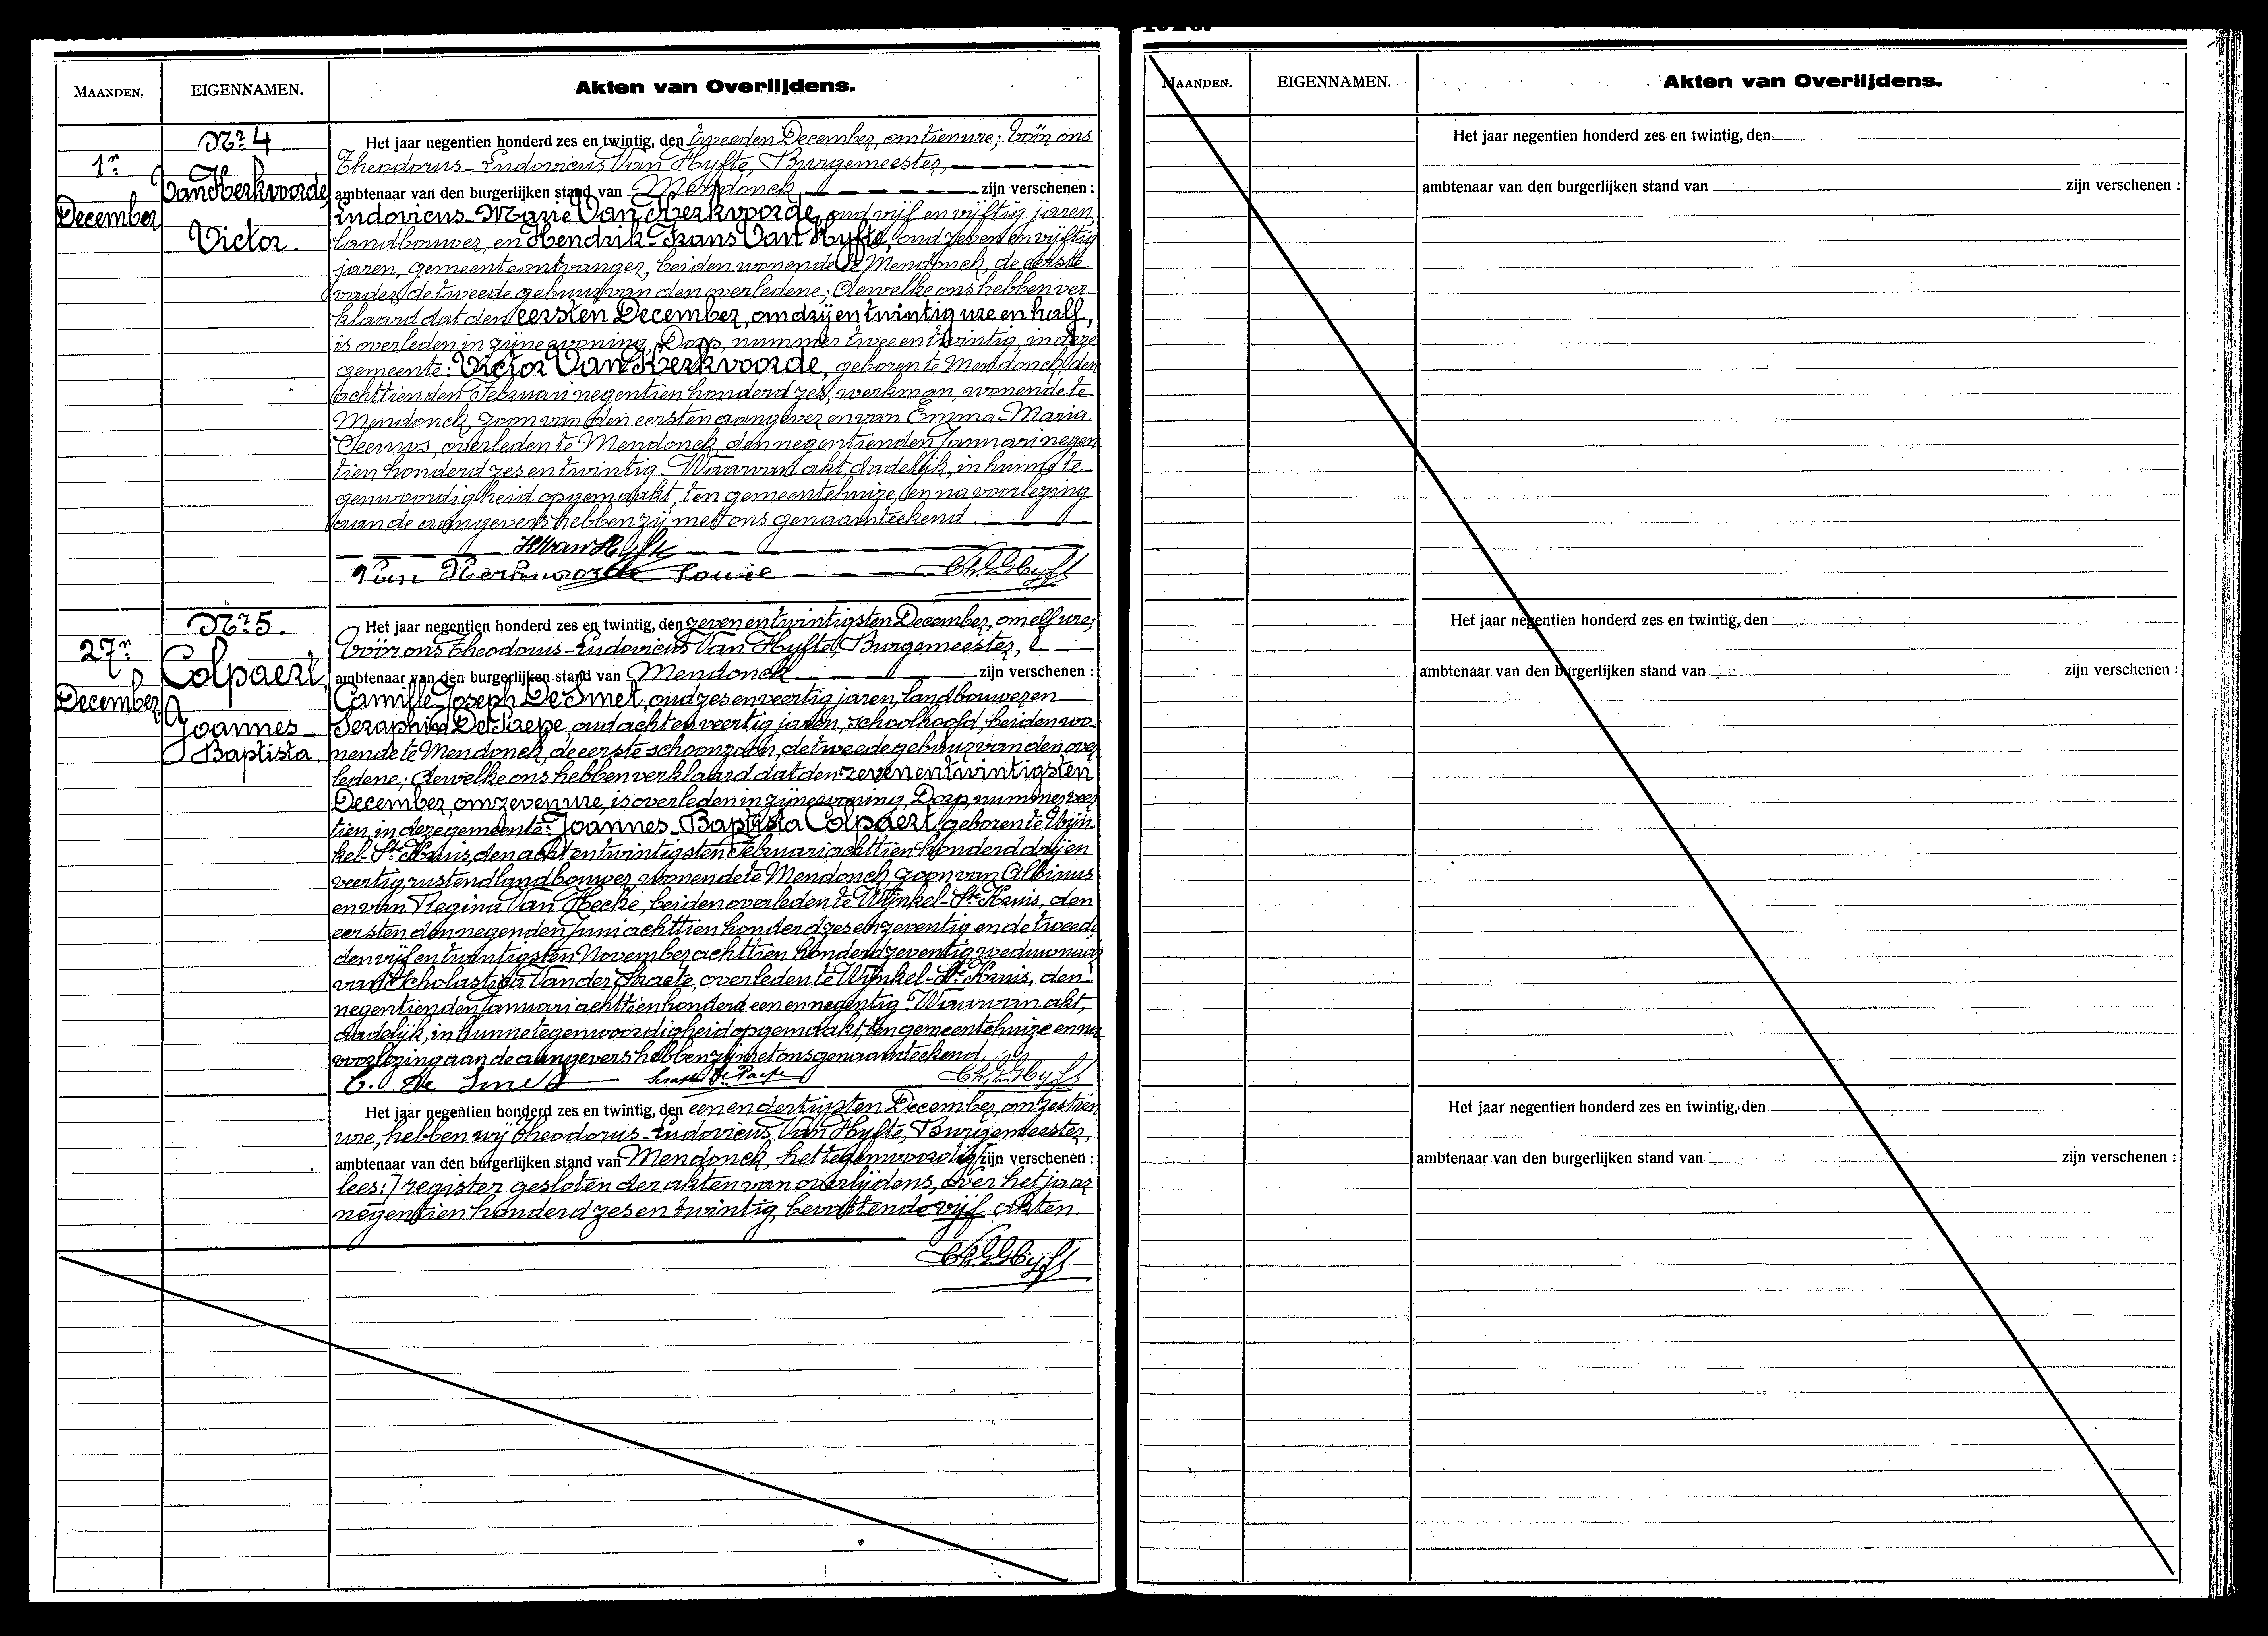 MAANDEN.
EIGENNAMEN.
Akten van Overlijdens.
Nr. 4.
1n
December
Van Kerkvoorde
Victor.
Het jaar negentien honderd zes en twintig, den tweeden December, om tien ure; Vóór ons
Theodorus-Ludovicus Van Hyfte, Burgemeester,
ambtenaar van den burgerlijken stand van Mendonck zijn verschenen :
Ludovicus-Marie Van Kerkvoorde, oud vijf en vijftig jaren,
landbouwer, en Hendrik-Frans Van Hyfte, oud zeven en vijftig
jaren, gemeenteontvanger, beiden wonende te Mendonck, de eerste
vader, de tweede gebuur van den overledene; dewelke ons hebben ver
klaard dat den eersten December, om drij en twintig ure en half,
is overleden in zijne woning, Dorp, nummer twee en twintig, in deze
gemeente: Victor Van Kerkvoorde, geboren te Mendonck, den
achttienden Februari negentien honderd zes, werkman, wonende te
Mendonck, zoon van den eersten aangever en van Emma-Maria
overleden te Mendonck, den negentienden Januari negen
tien honderd zes en twintig. Waarvan akt, dadelijk, in hunne te-
genwoordigheid opgemaakt, ten gemeentehuize, en na voorlezing
aan de aangevers hebben zij met ons genaamteekend.
H Van Hyfte
Van Kerkvoorde Louie
Nr. 5.
27n
December
Colpaert,
Joannes-
Baptista.
Het jaar negentien honderd zes en twintig, den zeven en twintigsten December, om elf ure;
Vóór ons Theodorus-Ludovicus Van Hyfte, Burgemeester,
ambtenaar van den burgerlijken stand van Mendonck zijn verschenen :
Camille-Joseph De Smet, oud zes en veertig jaren, landbouwer en
Seraphin De Paepe, oud acht en veertig jaren, schoolhoofd, beiden wo-
nende te Mendonck, de eerste schoonzoon, de tweede gebuur van den over
ledene; dewelke ons hebben verklaard dat den zeven en twintigsten
December, om zeven ure, is overleden in zijne woning, Dorp, nummer veer
tien, in deze gemeente: Joannes-Baptista Colpaert, geboren te Wijn-
kel-Ste Kruis, den acht en twintigsten Februari achttien honderd drij en
veertig, rustend landbouwer, wonende te Mendonck, zoon van Albinus
en van Regina Van Hecke, beiden overleden te Wijnkel-Ste Kruis, den
eersten den negenden Juni achttien honderd zes en zeventig en de tweede
den vijf en twintigsten November achttien honderd zeventig, weduwnaar
van Scholastica Vander Straete, overleden te Wijnkel-Ste Kruis, den
negentienden Januari achttien honderd een en negentig. Waarvan akt,
dadelijk, in hunne tegenwoordigheid opgemaakt, ten gemeentehuize en na
voorlezing aan de aangevers hebben zij met ons genaamteekend.
C. De Smet Seraph. De Paepe
Het jaar negentien honderd zes en twintig, den een en dertigsten December, om zestien
ure, hebben wij Theodorus-Ludovicus Van Hyfte, Burgemeester,
ambtenaar van den burgerlijken stand van Mendonck, het tegenwoordig zijn verschenen :
lees:] register gesloten der akten van overlijdens, over het jaar
negentien honderd zes en twintig, bevattende vijf akten.
MAANDEN.
EIGENNAMEN.
Akten van Overlijdens.
Het jaar negentien honderd zes en twintig, den
ambtenaar van den burgerlijken stand van zijn verschenen :
Het jaar negentien honderd zes en twintig, den
ambtenaar van den burgerlijken stand van zijn verschenen :
Het jaar negentien honderd zes en twintig, den
ambtenaar van den burgerlijken stand van zijn verschenen :